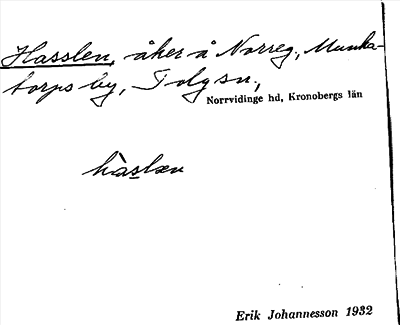 Hasslen, åker å Norreg., Munka-
torps by, Tolg sn.,
Norrvidinge hd, Kronobergs län
hàslən
Erik Johannesson 1932